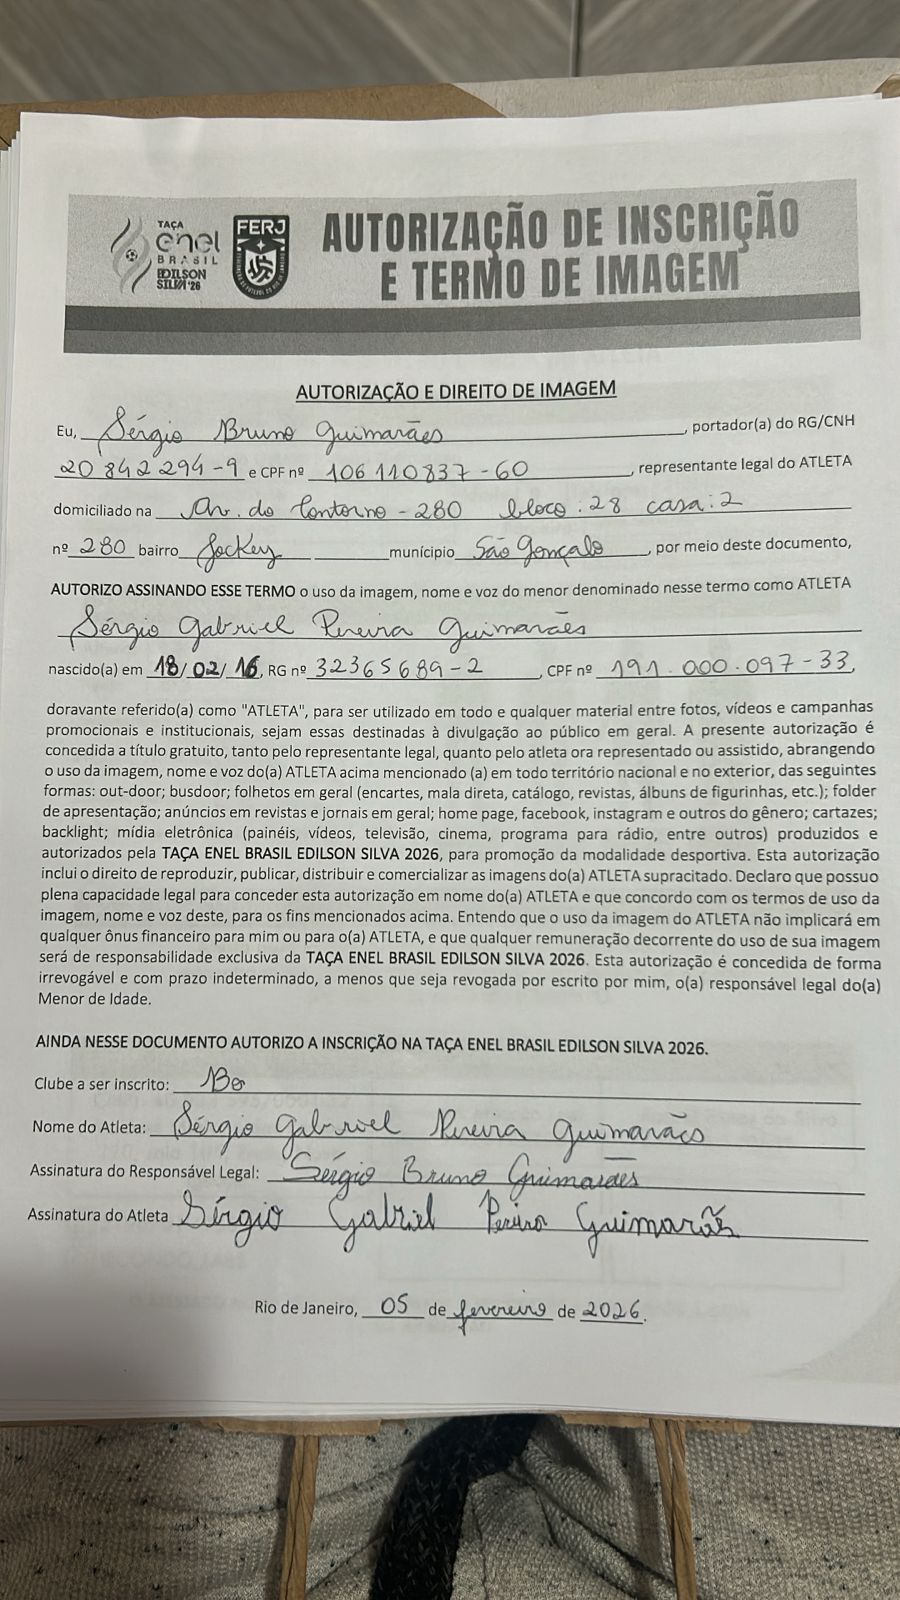 TAÇA
enel
BRASIL
EDILSON
SILVA'26
FERJ
AUTORIZAÇÃO DE INSCRIÇÃO
E TERMO DE IMAGEM
AUTORIZAÇÃO E DIREITO DE IMAGEM
Eu, Sérgio Bruno Guimarães, portador(a) do RG/CNH
20 842 294-9 e CPF nº 106 110837-60, representante legal do ATLETA
domiciliado na Av. do Contorno - 280 bloco: 28 casa: 2
nº 280 bairro Jockey munícipio São Gonçalo, por meio deste documento,
AUTORIZO ASSINANDO ESSE TERMO o uso da imagem, nome e voz do menor denominado nesse termo como ATLETA
Sérgio Gabriel Pereira Guimarães
nascido(a) em 18/02/16, RG nº 32365689-2, CPF nº 191.000.097-33,
doravante referido(a) como "ATLETA", para ser utilizado em todo e qualquer material entre fotos, vídeos e campanhas
promocionais e institucionais, sejam essas destinadas à divulgação ao público em geral. A presente autorização é
concedida a título gratuito, tanto pelo representante legal, quanto pelo atleta ora representado ou assistido, abrangendo
o uso da imagem, nome e voz do(a) ATLETA acima mencionado (a) em todo território nacional e no exterior, das seguintes
formas: out-door; busdoor; folhetos em geral (encartes, mala direta, catálogo, revistas, álbuns de figurinhas, etc.); folder
de apresentação; anúncios em revistas e jornais em geral; home page, facebook, instagram e outros do gênero; cartazes;
backlight; mídia eletrônica (painéis, vídeos, televisão, cinema, programa para rádio, entre outros) produzidos e
autorizados pela TAÇA ENEL BRASIL EDILSON SILVA 2026, para promoção da modalidade desportiva. Esta autorização
inclui o direito de reproduzir, publicar, distribuir e comercializar as imagens do(a) ATLETA supracitado. Declaro que possuo
plena capacidade legal para conceder esta autorização em nome do(a) ATLETA e que concordo com os termos de uso da
imagem, nome e voz deste, para os fins mencionados acima. Entendo que o uso da imagem do ATLETA não implicará em
qualquer ônus financeiro para mim ou para o(a) ATLETA, e que qualquer remuneração decorrente do uso de sua imagem
será de responsabilidade exclusiva da TAÇA ENEL BRASIL EDILSON SILVA 2026. Esta autorização é concedida de forma
irrevogável e com prazo indeterminado, a menos que seja revogada por escrito por mim, o(a) responsável legal do(a)
Menor de Idade.
AINDA NESSE DOCUMENTO AUTORIZO A INSCRIÇÃO NA TAÇA ENEL BRASIL EDILSON SILVA 2026.
Clube a ser inscrito:
Nome do Atleta: Sérgio Gabriel Pereira Guimarães
Assinatura do Responsável Legal: Sérgio Bruno Guimarães
Assinatura do Atleta Sérgio Gabriel Pereira Guimarães
Rio de Janeiro, 05 de fevereiro de 2026.